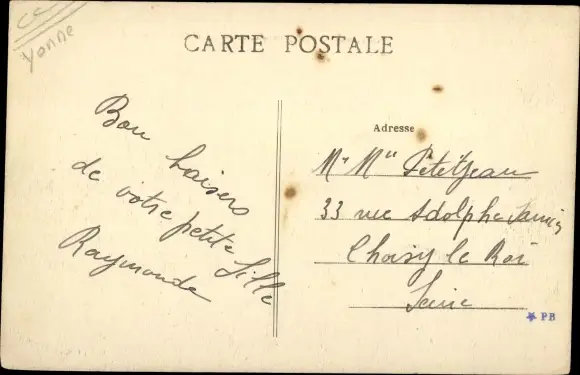 Yonne
CARTE POSTALE
Bon baisers
de votre petite fille
Raymonde
Adresse
Mr Mme Petitjean
33 rue Adolphe
Choisy le Roi
Seine
PB